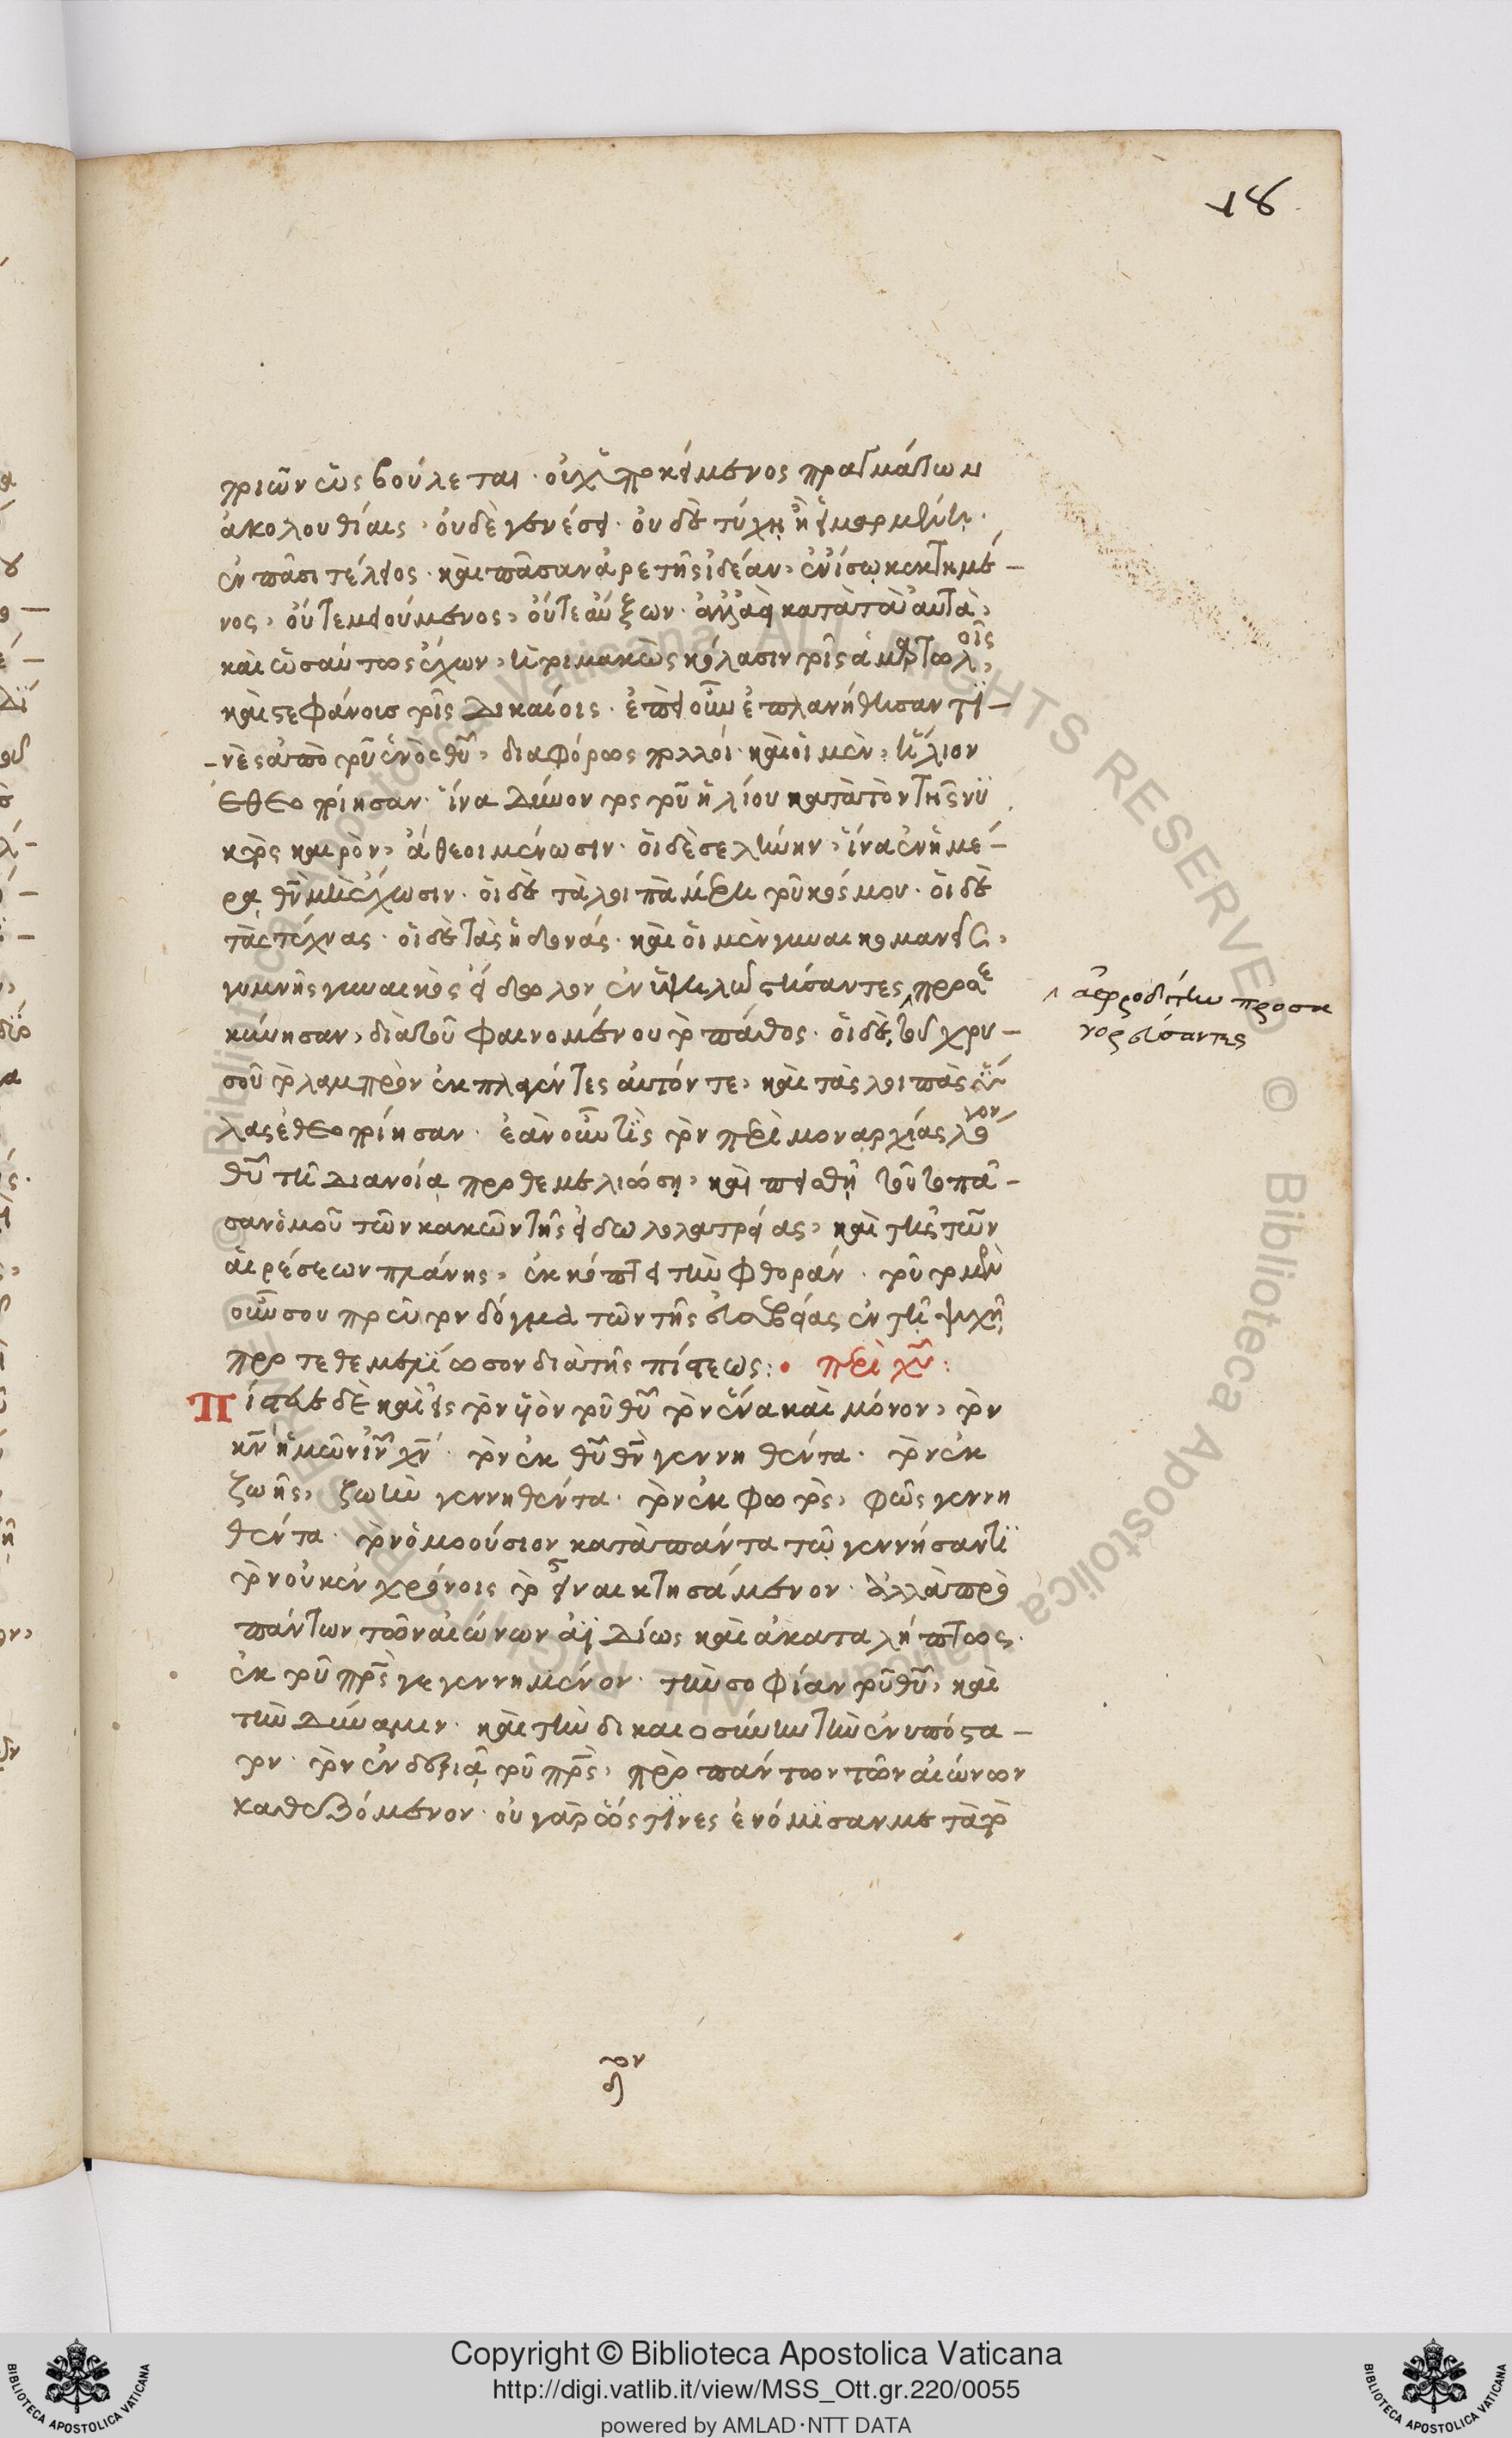 18
ποιῶν ὡς βούλεται· οὐχ ὑποκείμενος πραγμάτων
ἀκολουθίαις, οὐδὲ γενέσει· οὐδὲ τύχῃ ἢ εἱμαρμένῃ·
ἐν πᾶσι τέλειος· καὶ πᾶσαν ἀρετῆς ἰδέαν, ἐν ἴσῳ κεκτημέ-
νος, οὔτε μειούμενος, οὔτε αὔξων· ἀλλ' ἀεὶ κατὰ τὰ αὐτὰ,
καὶ ὡσαύτως ἔχων, ἡτοιμακὼς κόλασιν τοῖς ἁμαρτωλοῖς,
καὶ στεφάνοισ τοῖς δικαίοις· ἐπεὶ οὖν ἐπλανήθησαν τϊ-
-νὲς ἀπὸ τοῦ ἑνὸς θῦ, διαφόρως πολλοί· καὶ οἱ μὲν, ἥλιον
ἐθεοποίησαν· ἵνα δύνοντος τοῦ ἡλίου κατὰ τὸν τῆς νϋ
κτὸς καιρὸν, ἄθεοι μένωσιν· οἱ δὲ σελήνην, ἵνα ἐν ἡμέ-
ρᾳ θν μὴ ἔχωσιν· οἱ δὲ τὰ λοιπὰ μέρη τοῦ κόσμου· οἱ δὲ
τὰς τέχνας· οἱ δὲ τὰς ἡδονάς· καὶ οἱ μὲν γυναικομανεῖς,
γυμνῆς γυναικὸς εἴδωλον ἐν ὑψηλῷ στήσαντες, προσε
^ ἀφροδίτην προσα
γορεύσαντες
κύνησαν, διὰ τοῦ φαινομένου τὸ πάθος· οἱ δὲ, τοῦ χρυ-
σοῦ τὸ λαμπρὸν ἐκπλαγέντες αὐτόν τε, καὶ τὰς λοιπὰς ὕ
λας ἐθεοποίησαν· ἐὰν οὖν τὶς τὸν περὶ μοναρχίας λόγον
θῦ τῆ διανοία προθεμελιώση, καὶ πεισθῆ τοῦτο πᾶ-
σαν ὁμοῦ τῶν κακῶν τῆς εἰδωλολατρείας, καὶ τῆς τῶν
αἱρέσεων πλάνης, ἐκκόπτει τὴν φθοράν· τοῦτο μὲν
οὖν σου πρῶτον δόγμα τῶν τῆς εὐσεβείας ἐν τῆ ψυχῆ
προτεθεμελϊώσον διὰ τῆς πίστεως: • περὶ χῦ:
Πίστευε δὲ καὶ εἰς τὸν υἱὸν τοῦ θῦ τὸν ἕνα καὶ μόνον, τὸν
κν ἡμῶν ἰν χν· τὸν ἐκ θῦ θν γεννηθέντα· τὸν ἐκ
ζωῆς, ζωὴν γεννηθέντα· τὸν ἐκ φωτὸς, φῶς γεννη
θέντα· τὸν ὁμοούσιον κατὰ πάντα τῷ γεννήσαντϊ
τὸν οὐκ ἐν χρόνοις τὸ εἶναι κτησάμενον· ἀλλὰ πρὸ
πάντων τῶν αἰώνων ἀϊδίως καὶ ἀκαταλήπτως·
ἐκ τοῦ πρς γεγεννημένον· τὴν σοφίαν τοῦ θῦ, καὶ
τὴν δύναμιν· καὶ τὴν δικαιοσύνην τὴν ἐνυπόστα-
τον· τὸν ἐν δεξιᾷ τοῦ πρς, πρὸ πάντων τῶν αἰώνων
καθεζόμενον· οὐ γὰρ ὥς τϊνες ἐνόμϊσαν μετὰ τὸ
Copyright © Biblioteca Apostolica Vaticana
http://digi.vatlib.it/view/MSS_Ott.gr.220/0055
powered by AMLAD·NTT DATA